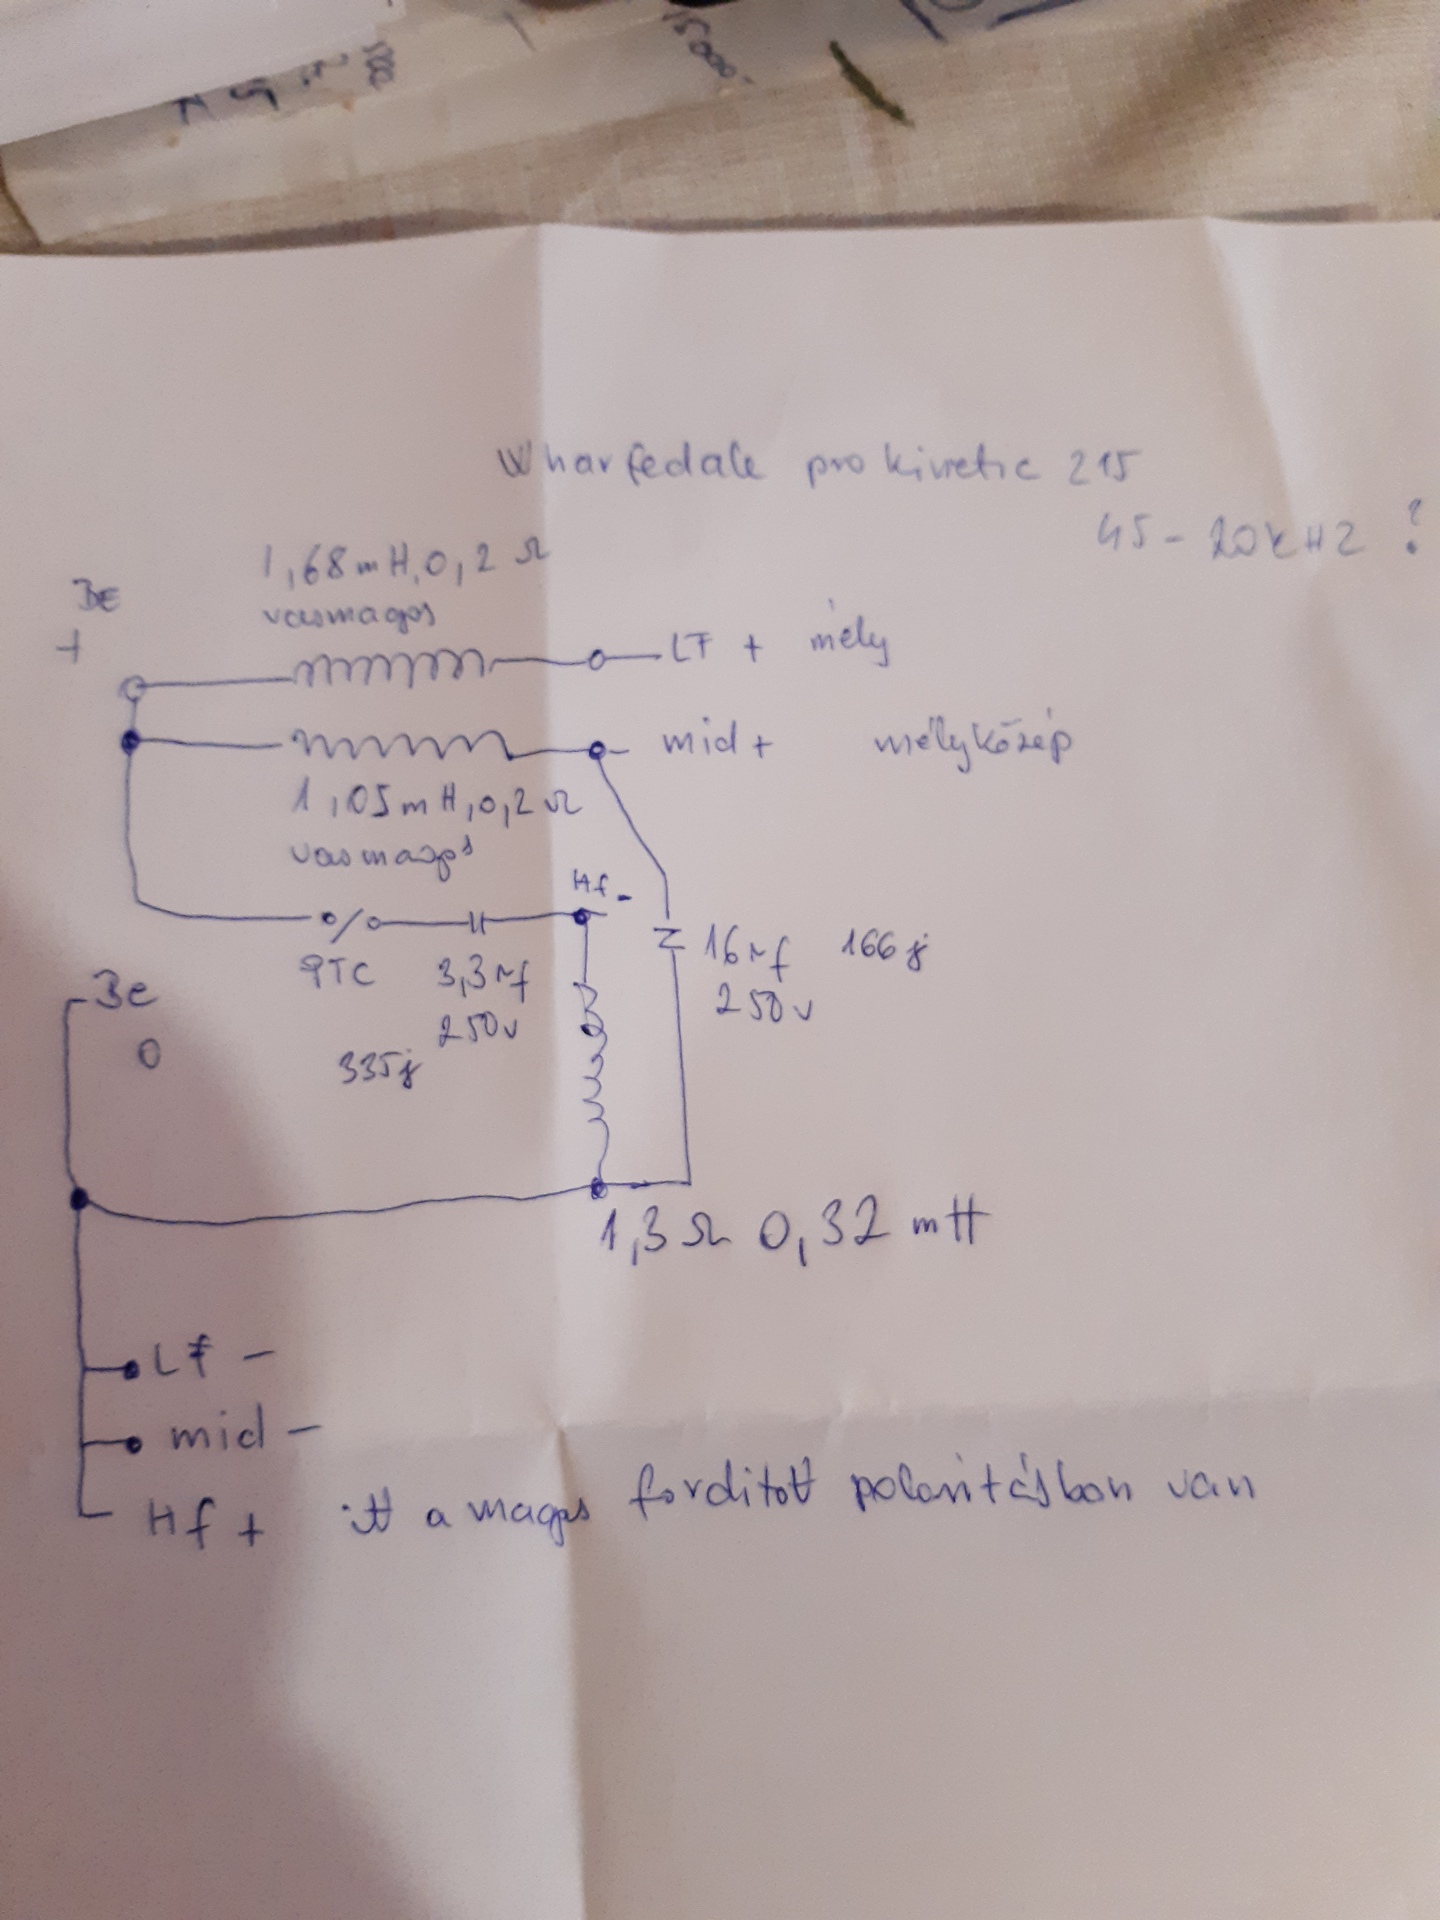 500
15000.-
Wharfedale pro kinetic 215
45 - 20kHz ?
1,68mH,0,2 Ω
vasmagos
Be
+
LF + mély
mid+ mélyközép
1,05mH,0,2 Ω
vasmagos
Hf -
PTC
3,3 µf
250v
335j
16 µf 166j
250v
Be
0
1,3 Ω 0,32 mH
Lf -
mid -
Hf + itt a magas fordított polaritásban van